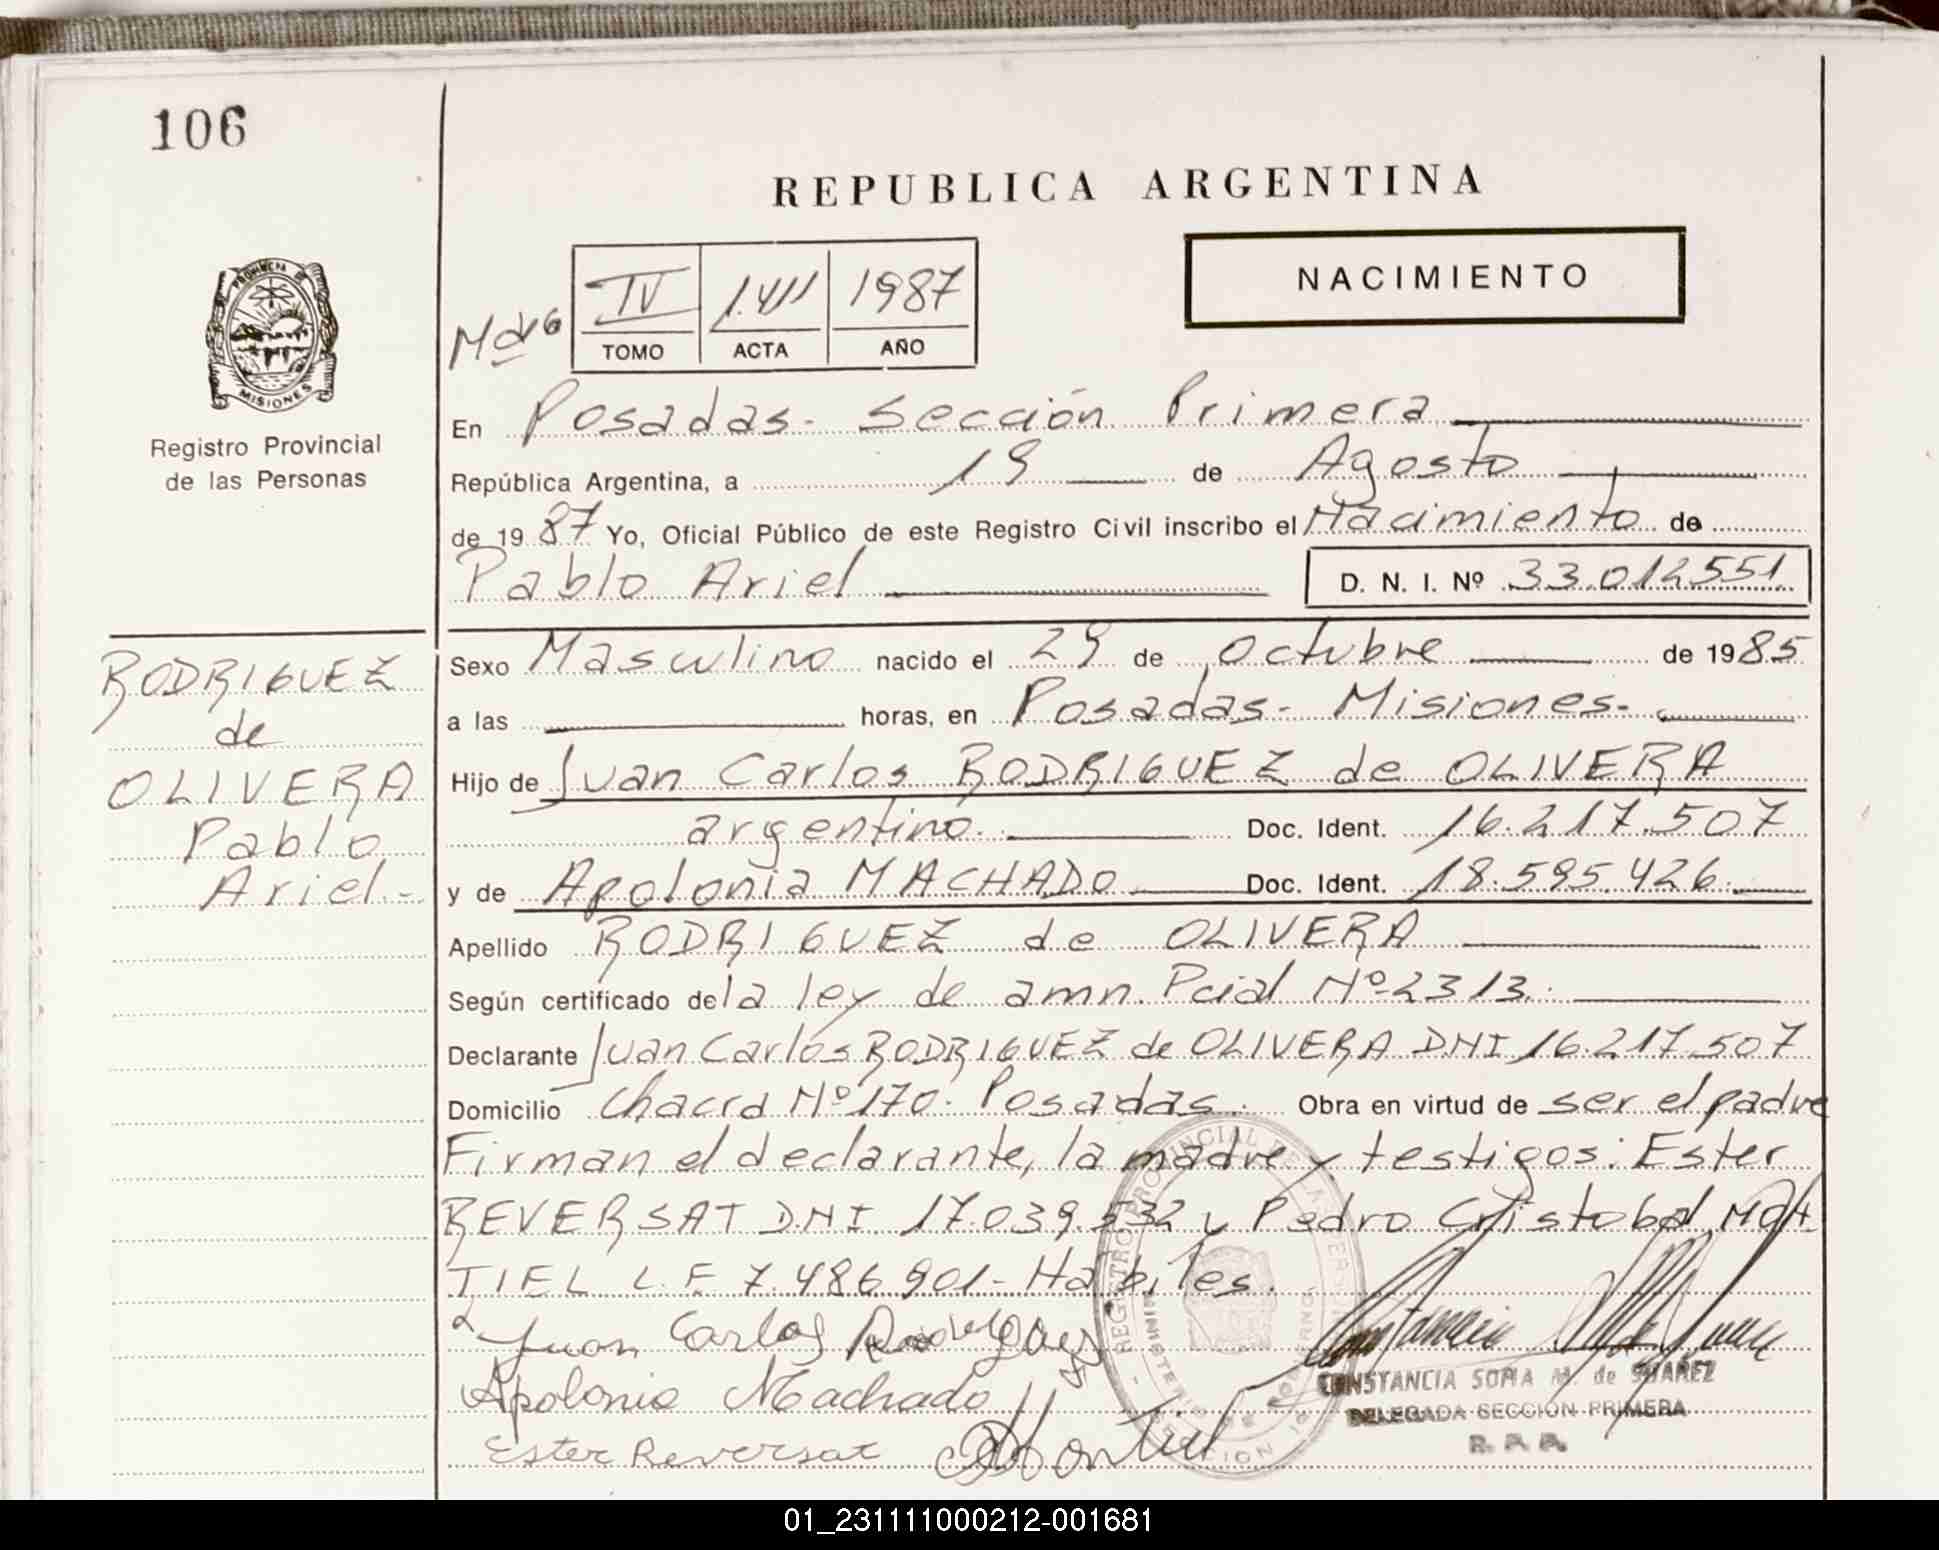 106
REPUBLICA ARGENTINA
NACIMIENTO
IV 1.411 1987
TOMO ACTA AÑO
PROVINCIA DE
MISIONES
Registro Provincial
de las Personas
En Posadas - Sección Primera
República Argentina, a 19 de Agosto
de 1987 Yo, Oficial Público de este Registro Civil inscribo el Nacimiento de
Pablo Ariel D. N. I. Nº 33.012551
RODRIGUEZ
de
OLIVERA
Pablo
Ariel.-
Sexo Masculino nacido el 29 de Octubre de 1985
a las horas, en Posadas - Misiones-
Hijo de Juan Carlos RODRIGUEZ de OLIVERA
argentino. Doc. Ident. 16.217.507
y de Apolonia MACHADO Doc. Ident. 18.595.426
Apellido RODRIGUEZ de OLIVERA
Según certificado de la ley de amn. Pcial Nº 2313.
Declarante Juan Carlos RODRIGUEZ de OLIVERA DNI 16.217.507
Domicilio Chacra Nº 170. Posadas. Obra en virtud de ser el padre
Firman el declarante, la madre y testigos: Ester
REVERSAT DNI. 17.039.532 y Pedro Cristobal MON
TIEL L.E. 7.486.901- Habiles.
Juan Carlos Rodriguez
Apolonia Machado
Ester Reversat Montiel
CONSTANCIA SOFIA M. de SUAREZ
DELEGADA SECCION PRIMERA
R. P. P.
01_231111000212-001681